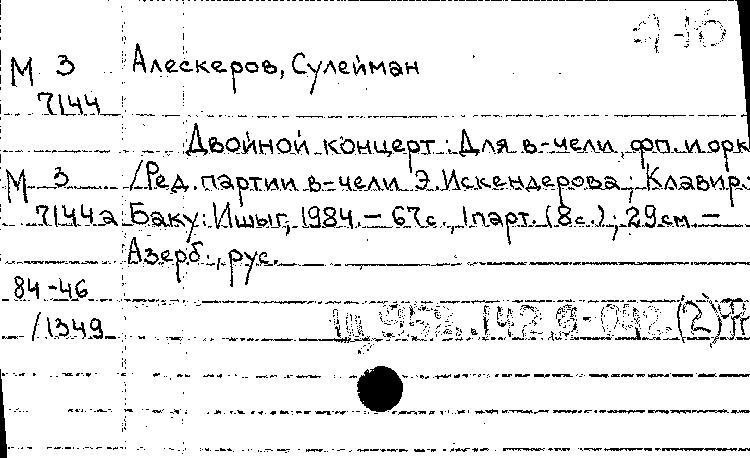 М 3 Алескеров, Сулейман
7144
Двойной концерт: Для в-чели, фп. и орк
М 3 /Ред. партии в-чели Э. Искендерова; Клавир.
7144а Баку: Ишыг, 1984. – 67с., 1парт. (8с.); 29см. –
Азерб., рус.
84-46
/1349